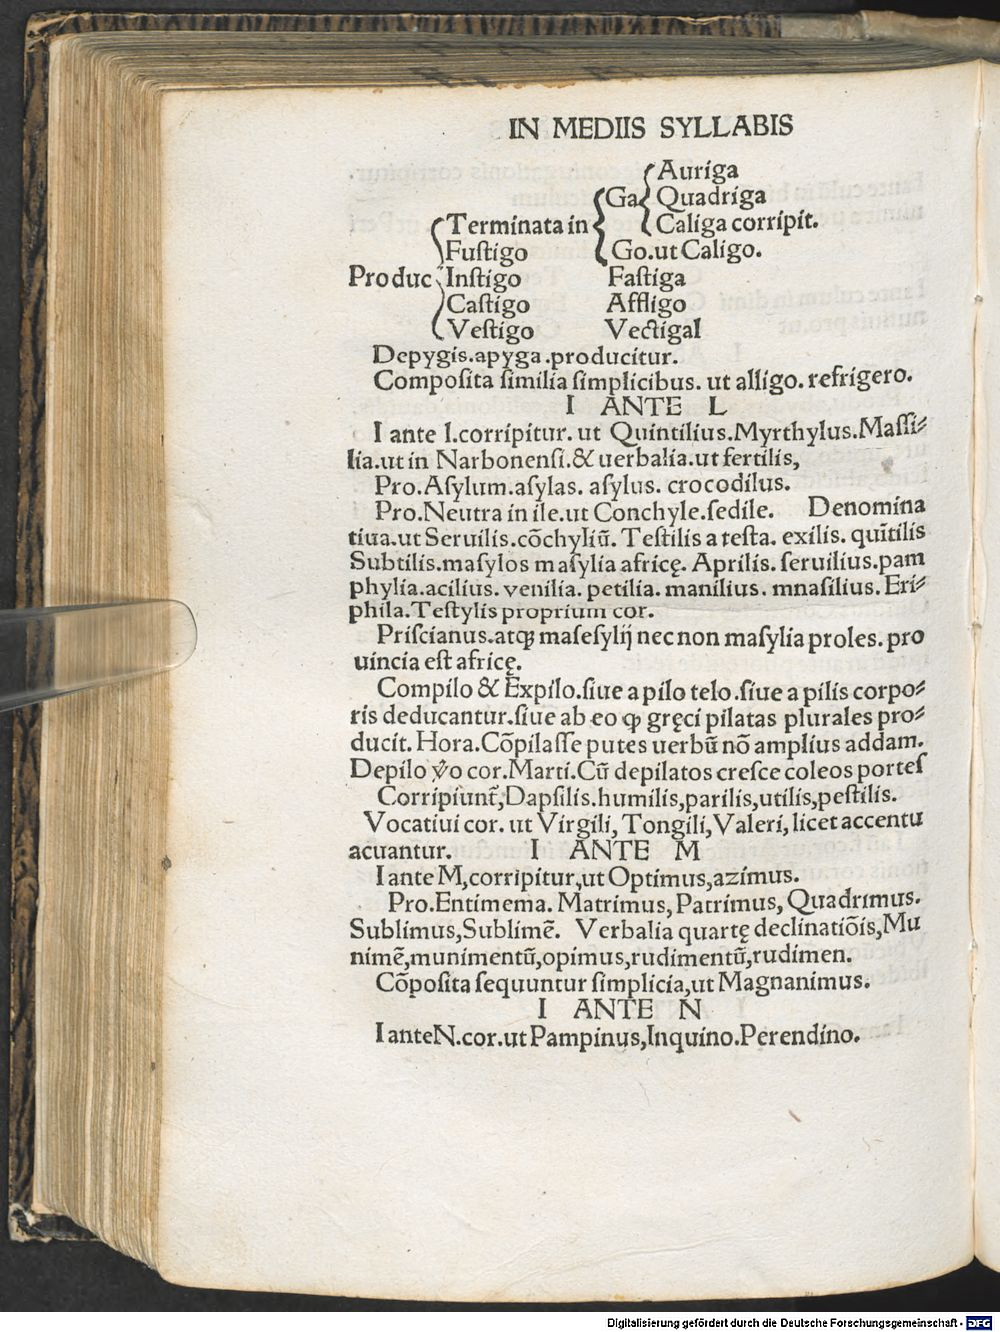 IN MEDIIS SYLLABIS
Auriga
Ga Quadriga
Terminata in Caliga corripit.
Fuſtigo Go.ut Caligo.
Produc Inſtigo Faſtiga
Caſtigo Affligo
Veſtigo Vectigal
Depygis.apyga.producitur.
Compoſita ſimilia ſimplicibus. ut alligo. refrigero.
I ANTE L
I ante l.corripitur. ut Quintilius.Myrthylus.Maſſi⸗
lia.ut in Narbonenſi.& uerbalia.ut fertilis,
Pro.Aſylum.aſylas. aſylus. crocodilus.
Pro.Neutra in ile.ut Conchyle.ſedile. Denomina
tiua.ut Seruilis.cõchyliũ. Teſtilis a teſta. exilis. quĩtilis
Subtilis.maſylos maſylia africę. Aprilis. ſeruilius.pam
phylia.acilius. venilia. petilia. manilius. mnaſilius. Eri⸗
phila.Teſtylis proprium cor.
Priſcianus.atqꝫ maſeſylij nec non maſylia proles. pro
uincia eſt africę.
Compilo & Expilo.ſiue a pilo telo.ſiue a pilis corpo⸗
ris deducantur.ſiue ab eo ꝙ gręci pilatas plurales pro⸗
ducit. Hora.Cõpilaſſe putes uerbũ nõ amplius addam.
Depilo v̊o cor.Marti.Cũ depilatos creſce coleos porteſ
Corripiunt̃,Dapſilis.humilis,parilis,utilis,peſtilis.
Vocatiui cor. ut Virgili, Tongili,Valeri, licet accentu
acuantur. I ANTE M
I ante M,corripitur,ut Optimus,azimus.
Pro.Entimema. Matrimus, Patrimus, Quadrimus.
Sublimus,Sublimẽ. Verbalia quartę declinatiõis,Mu
nimẽ,munimentũ,opimus,rudimentũ,rudimen.
Cõpoſita ſequuntur ſimplicia,ut Magnanimus.
I ANTE N
I ante N.cor.ut Pampinus,Inquino.Perendino.
Digitalisierung gefördert durch die Deutsche Forschungsgemeinschaft - DFG